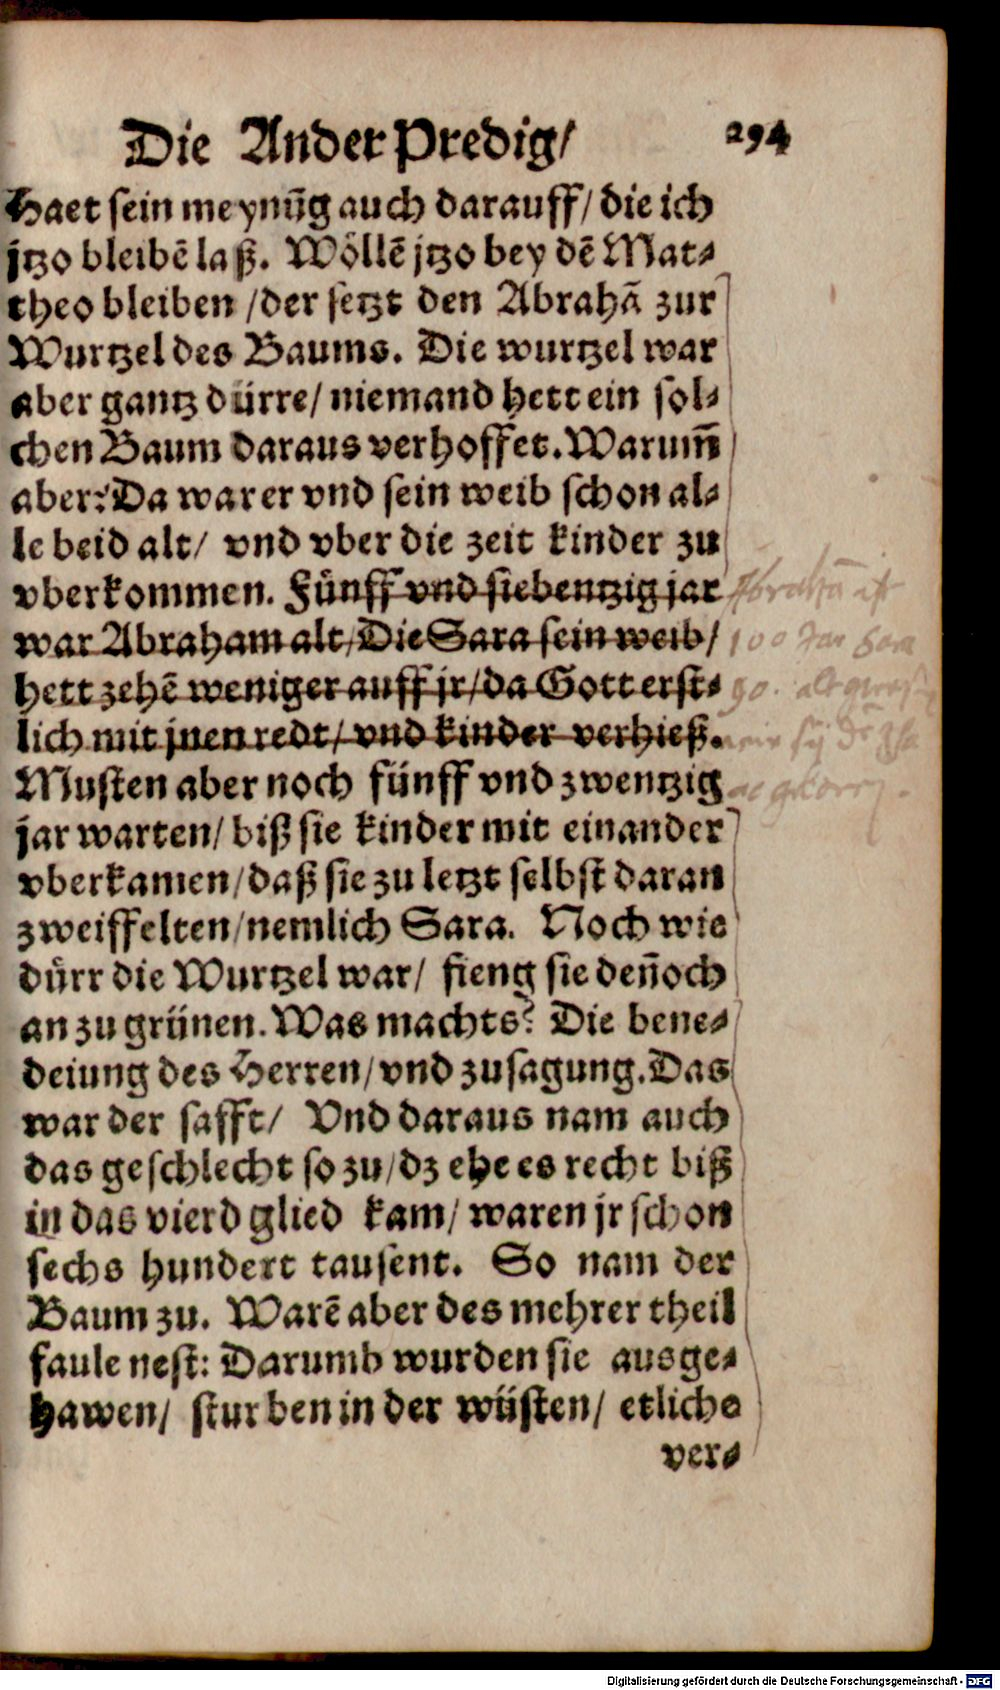 Die Ander Predig/ 294
Haet sein meynūg auch darauff/ die ich
jtzo bleibē laß. Wöllē jtzo bey dē Mat⸗
theo bleiben /der setzt den Abrahā zur
Wurtzel des Baums. Die wurtzel war
aber gantz dürre/ niemand hett ein sol⸗
chen Baum daraus verhoffet. Warum̄
aber? Da war er vnd sein weib schon al⸗
le beid alt/ vnd vber die zeit kinder zu
vberkommen. Fünff vnd siebentzig jar
war Abraham alt/ Die Sara sein weib/
hett zehē weniger auff jr/ da Gott erst⸗
lich mit jnen redt/ vnd kinder verhieß.
Musten aber noch fünff vnd zwentzig
jar warten/ biß sie kinder mit einander
vberkamen/ daß sie zu letzt selbst daran
zweiffelten/ nemlich Sara. Noch wie
dürr die Wurtzel war/ fieng sie den̄och
an zu grünen. Was machts? Die bene⸗
deiung des Herren/ vnd zusagung. Das
war der safft/ Vnd daraus nam auch
das geschlecht so zu/ dz ehe es recht biß
in das vierd glied kam/ waren jr schon
sechs hundert tausent. So nam der
Baum zu. Warē aber des mehrer theil
faule nest: Darumb wurden sie ausge⸗
hawen/ sturben in der wüsten/ etliche
ver⸗
Abrahā ist
100 Jar Sara
90. alt
Digitalisierung gefördert durch die Deutsche Forschungsgemeinschaft - DFG